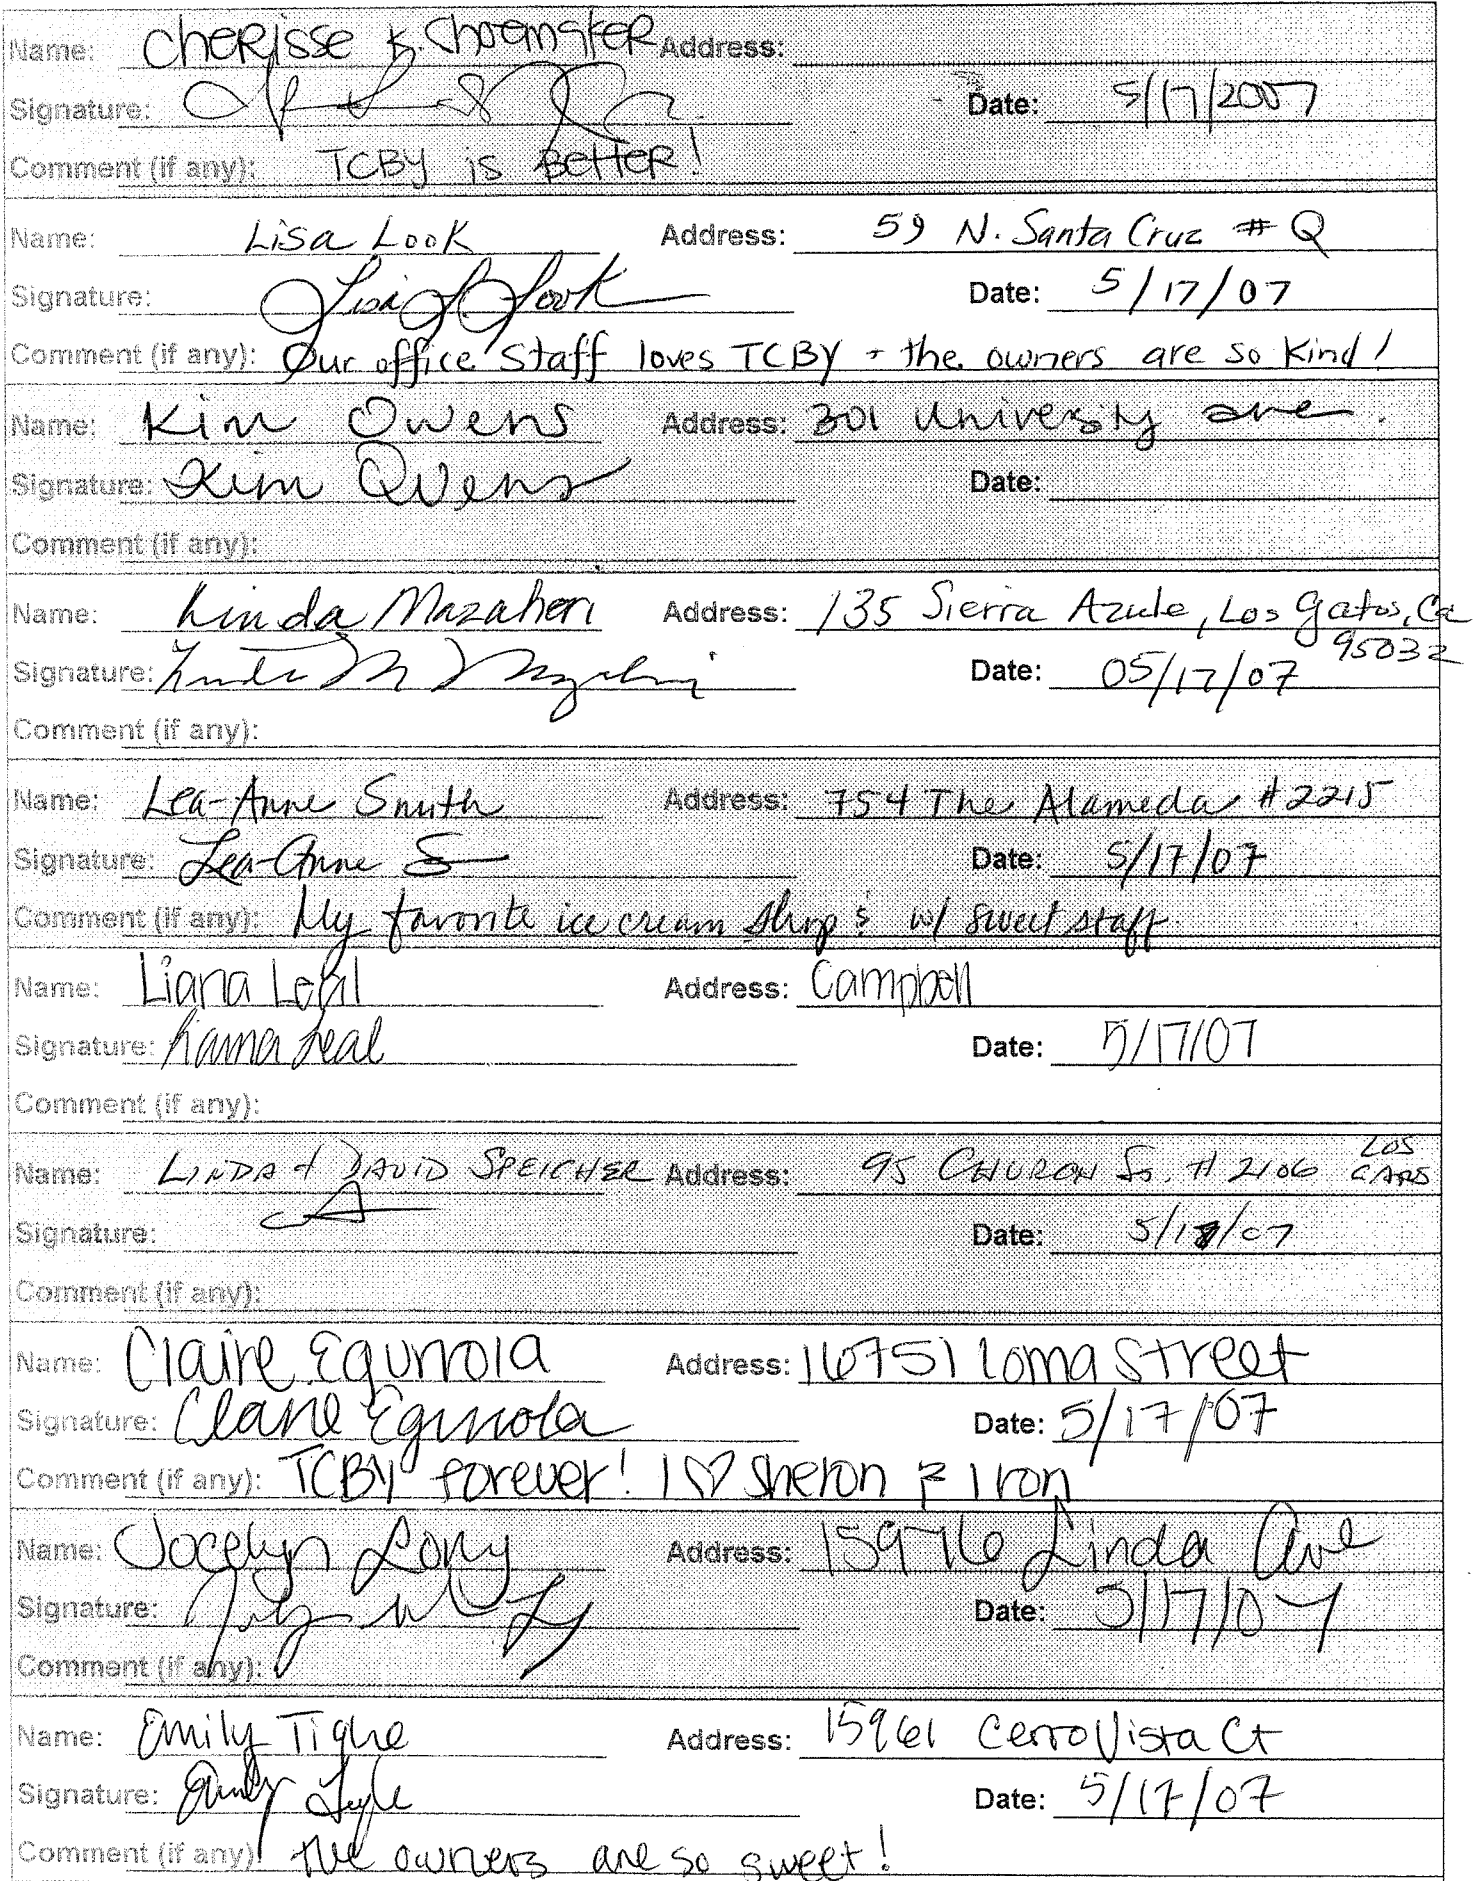 Name: Cherisse K. Shoemaker Address:
Signature: Date: 5/17/2007
Comment (if any): TCBY is Better!
Name: Lisa Look Address: 59 N. Santa Cruz # Q
Signature: Lisa Look Date: 5/17/07
Comment (if any): Our office staff loves TCBY - the owners are so kind!
Name: Kim Owens Address: 301 University ave.
Signature: Kim Owens Date:
Comment (if any):
Name: Linda Mazaheri Address: 135 Sierra Azule, Los Gatos, Ca
95032
Signature: Linda M Mazaheri Date: 05/17/07
Comment (if any):
Name: Lea-Anne Smith Address: 754 The Alameda #2215
Signature: Lea-Anne S Date: 5/17/07
Comment (if any): My favorite ice cream shop! w/ sweet staff
Name: Liana Leal Address: Campbell
Signature: Liana Leal Date: 5/17/07
Comment (if any):
Name: LINDA + DAVID SPEICHER Address: 95 CHURCH St. # 2106 LOS GATOS
Signature: Date: 5/17/07
Comment (if any):
Name: Claire Egurrola Address: 16751 Loma Street
Signature: Claire Egurrola Date: 5/17/07
Comment (if any): TCBY forever! I ♡ Sheron & Iron
Name: Jocelyn Long Address: 15976 Linda Ave
Signature: Date: 5/17/07
Comment (if any):
Name: Emily Tighe Address: 15961 Cerro Vista Ct
Signature: Emily Tighe Date: 5/17/07
Comment (if any): the owners are so sweet!